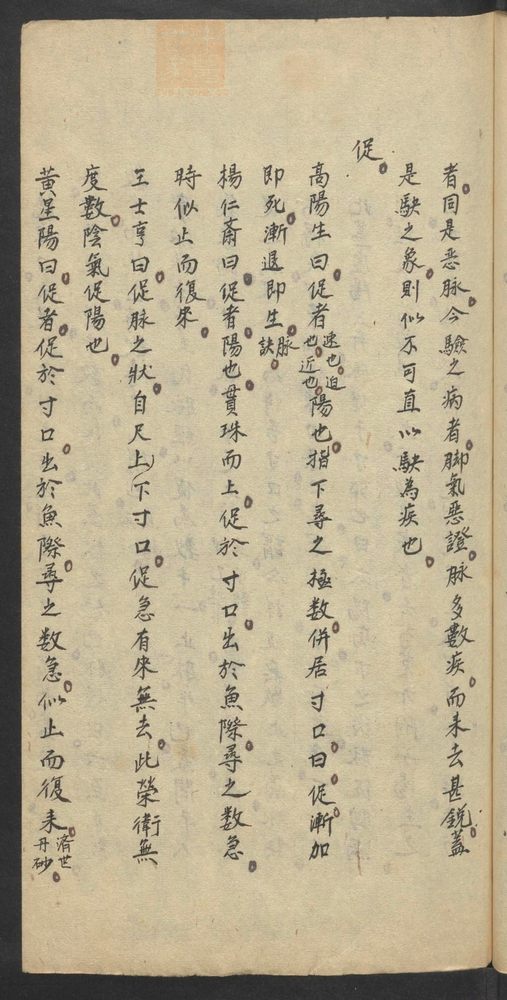 者同是恶脉今驗之病者脚氣恶證脉多數疾而来去甚鋭蓋
是駃之象則似不可直以駃為疾也
促
高陽生曰促者速也迫也近也陽也指下尋之極数併居寸口曰促漸加
即死漸退即生脉訣
楊仁斎曰促者陽也貫珠而上促於寸口出於魚際尋之数急
時似止而復来
王士亨曰促脉之狀自尺上下寸口促急有来無去此榮衛無
度數陰氣促陽也
黃星陽曰促者促於寸口出於魚際尋之数急似止而復来済世丹砂